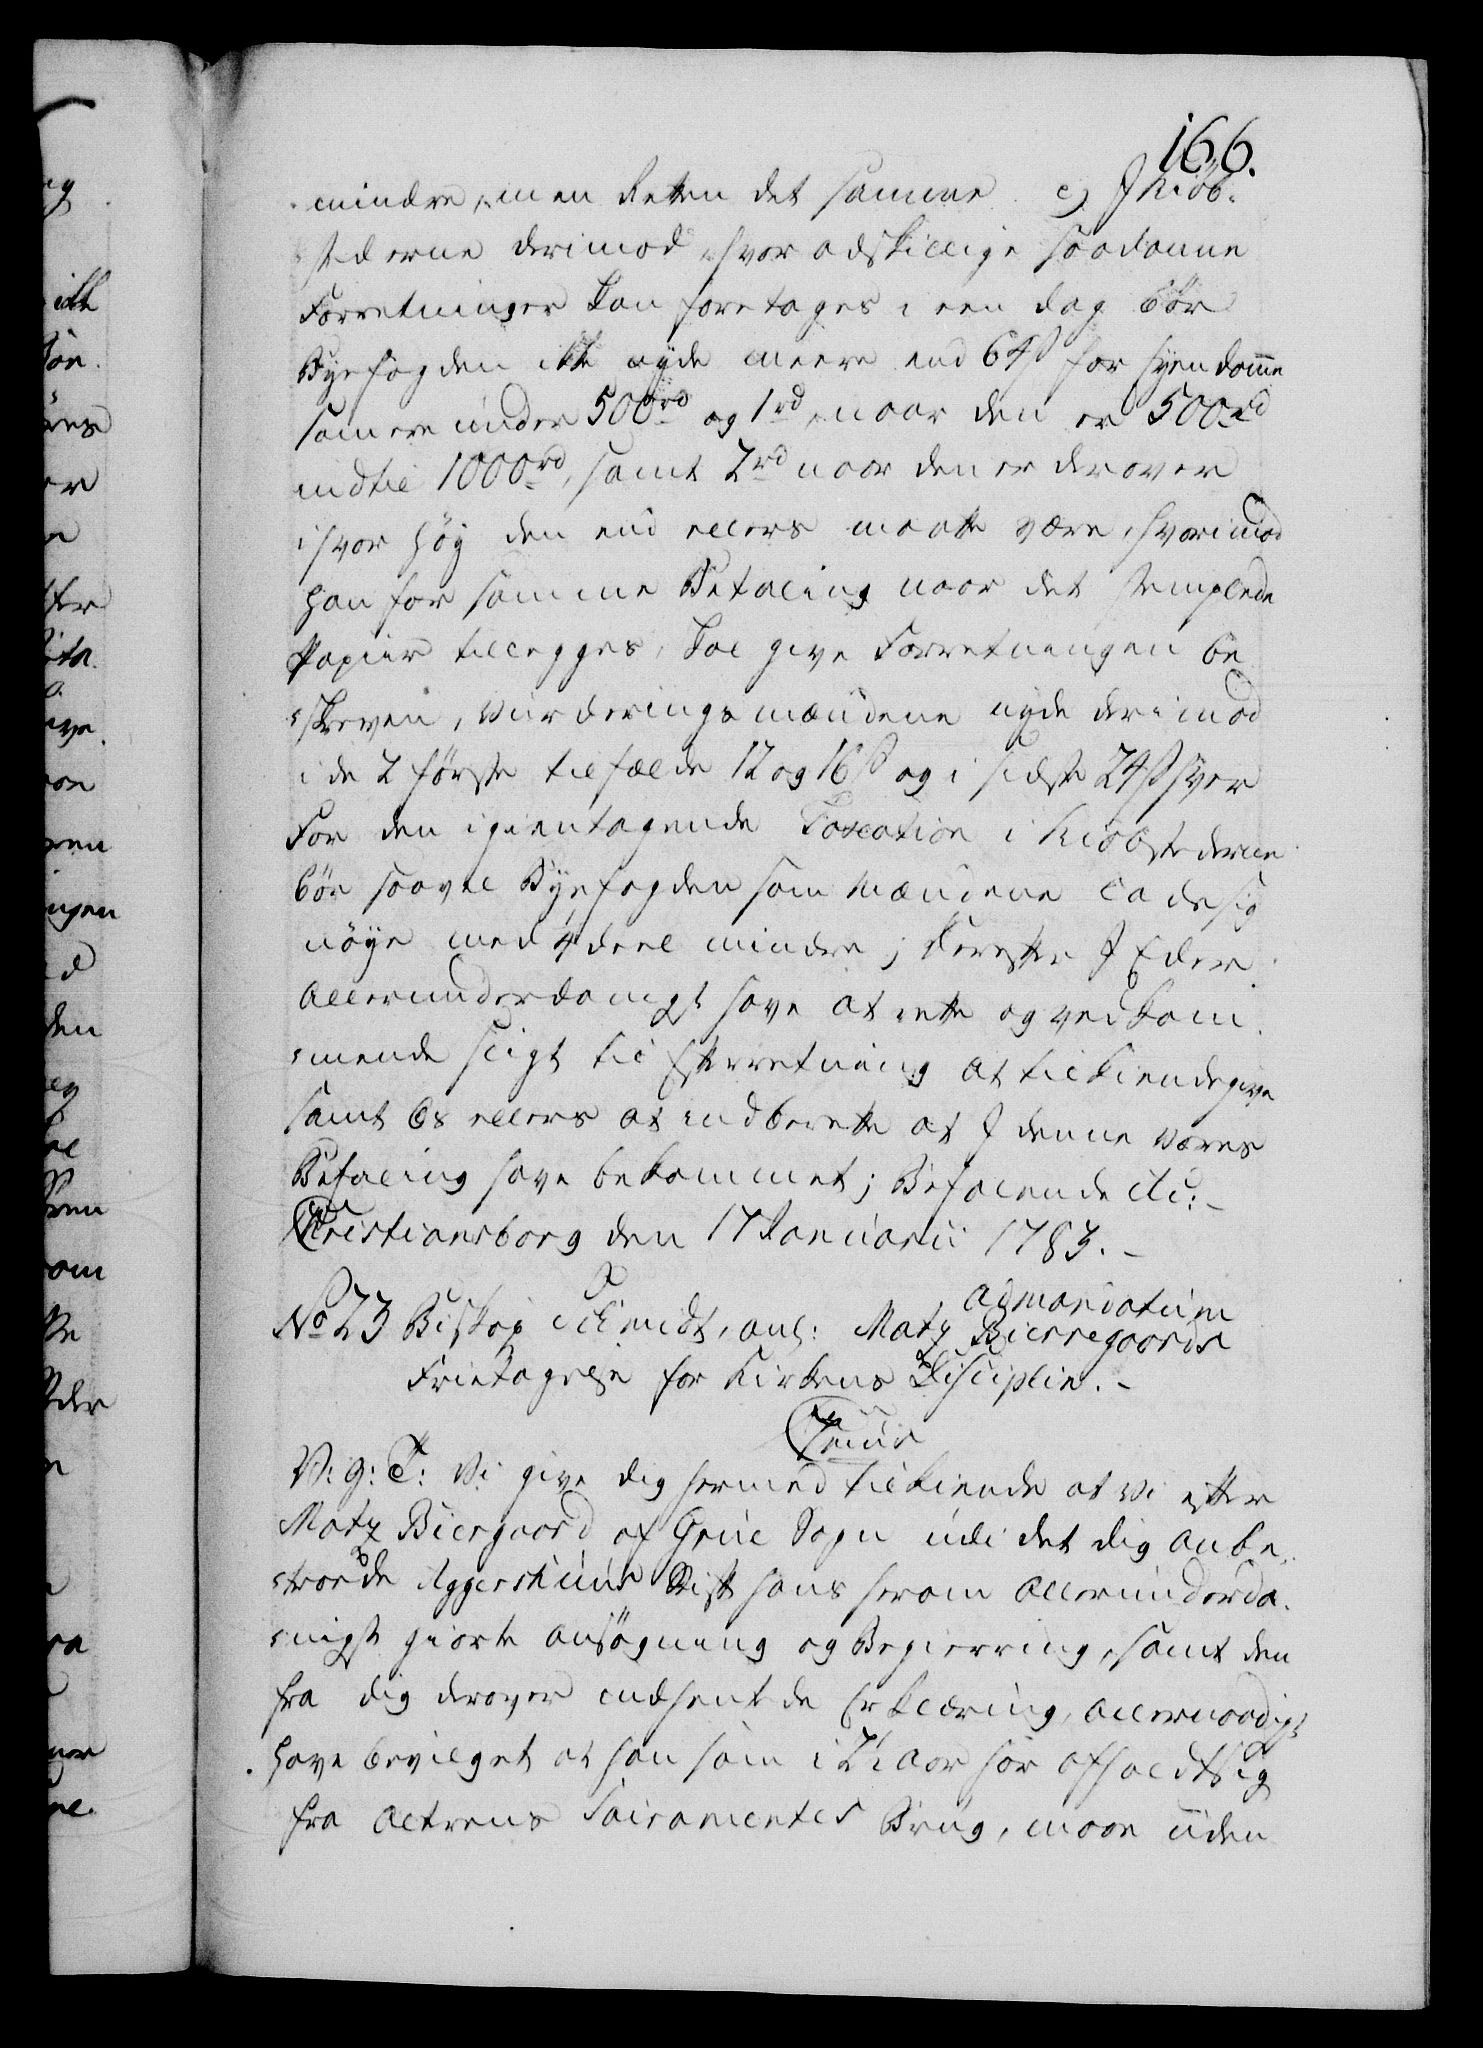 166.
mindre, men Retten det samme. c) I Kiøb-
stæderne derimod, hvor adskillige saadanne
Forretninger kan foretages i een dag bør
Byefogden ikke nyde meere end 64 s for Eyendomme
som ere under 500 rd og 1 rd, naar den er 500 rd
indtil 1000 rd, samt 2 rd naar den er derover
ihvor høy den end ellers maatte være, hvorimod
han for samme Betaling naar det stemplede
Papiir tillegges, skal give Forretningen be-
skreven, Vurderings mændene nyde derimod
i de 2 første tilfælde 12 og 16 s og i sidste 24 s hver
For den igientagende Taxation i Kiøbstederne
bør saavel Byefogden som Mændene lade sig
nøye med 4 deel mindre; Derefter I Eder
Allerunderdanigst have at rette og vedkom-
mende sligt til Efterretning at tilkiendegive
samt Os ellers at indberette at I denne Vores
Befaling have bekommet; Befalende etc:
Christiansborg den 17 Januarii 1783.
Ad mandatum
No 23 Biskop Schmidt, anl: Matz Bierregaards
Frietagelse for Kirkens Disciplin.
C: 7mus
V: G: T: Vi give dig hermed tilkiende at Vi efter
Matz Biergaard af Grue Sogn udi det dig anbe-
troede Aggershuus Stift hans herom Allerunderda-
nigst giorte Ansøgning og Begierring, samt den
fra dig derover indhentede Erklæring, Allernaadigst
have bevilget at han som i 21 Aar har afholdt sig
fra Altrens Sacramentes Brug, maae uden